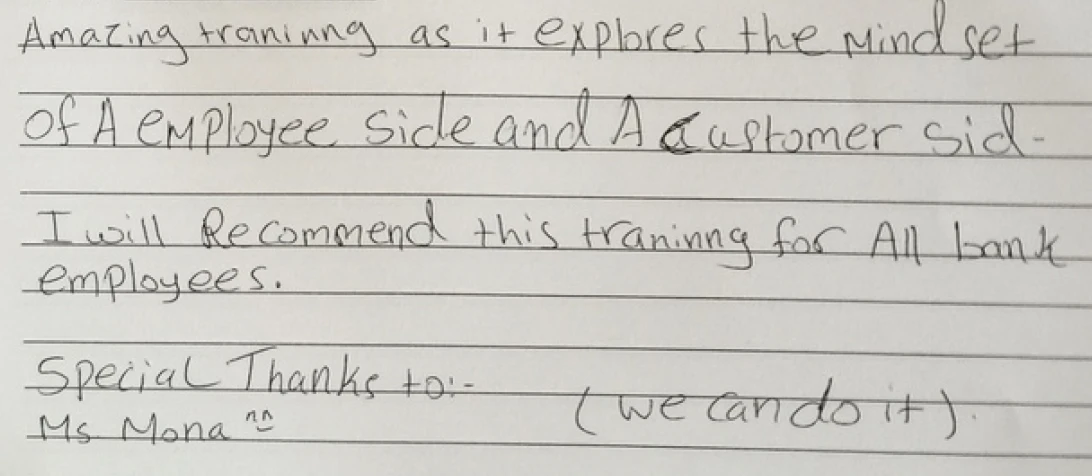 Amazing traninng as it explores the Mind set
Of A employee side and A customer sid-
I will Recommend this traninng for All bank
employees.
Special Thanks to:-
Ms Mona (we can do it).